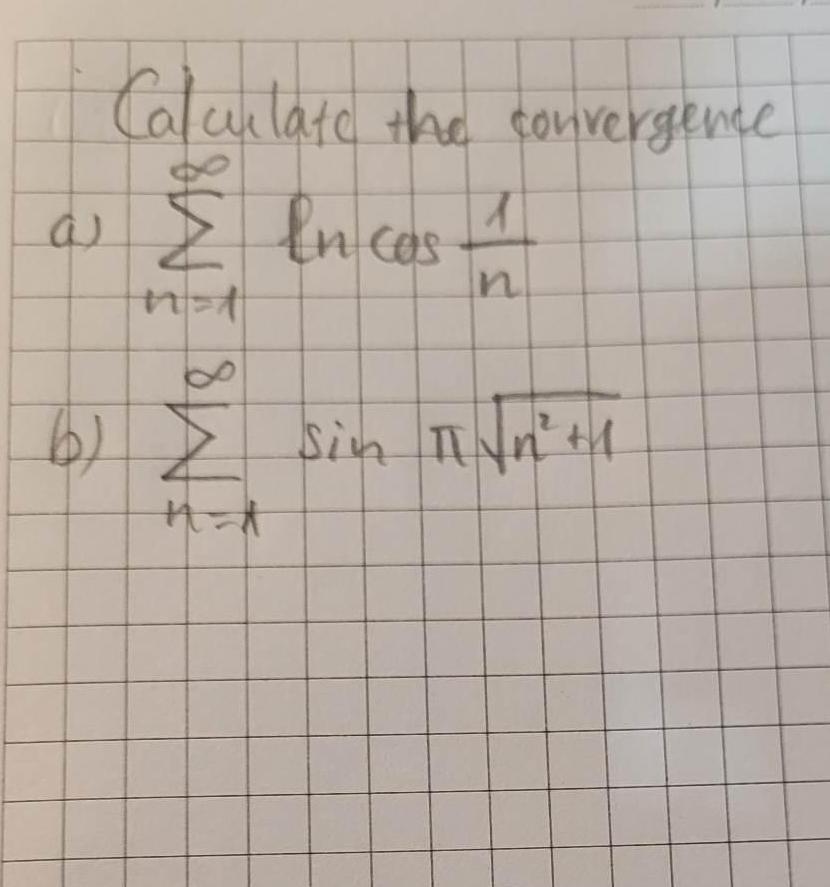 Calculate the convergence
a) ∞ ∑ n=1 ln cos 1/n
b) ∞ ∑ n=1 sin π√(n²+1)